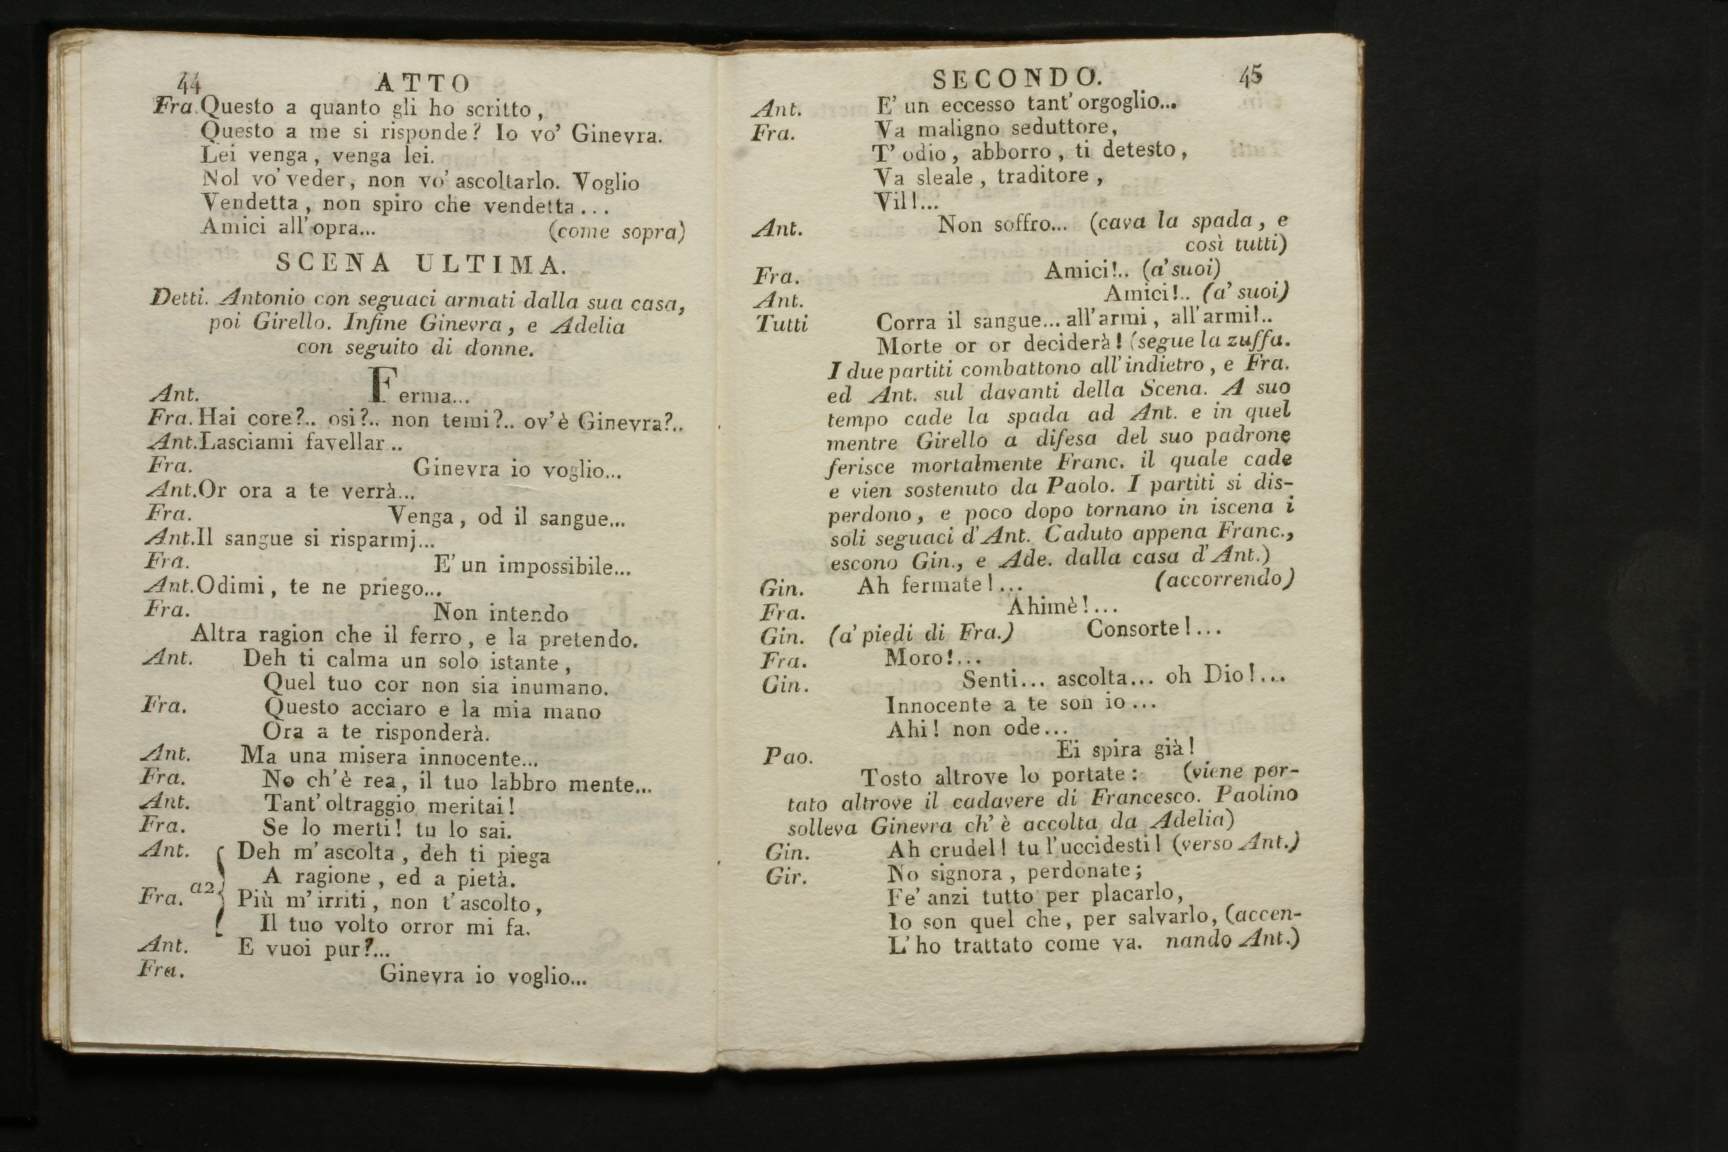 44 ATTO
Fra. Questo a quanto gli ho scritto,
Questo a me si risponde? Io vo' Ginevra.
Lei venga, venga lei.
Nol vo' veder, non vo' ascoltarlo. Voglio
Vendetta, non spiro che vendetta...
Amici all'opra... (come sopra)
SCENA ULTIMA.
Detti. Antonio con seguaci armati dalla sua casa,
poi Girello. Infine Ginevra, e Adelia
con seguito di donne.
Ant. Ferma...
Fra. Hai core?.. osi?.. non temi?.. ov'è Ginevra?..
Ant. Lasciami favellar..
Fra. Ginevra io voglio...
Ant. Or ora a te verrà...
Fra. Venga, od il sangue...
Ant. Il sangue si risparmj...
Fra. E' un impossibile...
Ant. Odimi, te ne priego...
Fra. Non intendo
Altra ragion che il ferro, e la pretendo.
Ant. Deh ti calma un solo istante,
Quel tuo cor non sia inumano.
Fra. Questo acciaro e la mia mano
Ora a te risponderà.
Ant. Ma una misera innocente...
Fra. No ch'è rea, il tuo labbro mente...
Ant. Tant' oltraggio meritai!
Fra. Se lo merti! tu lo sai.
Ant. Deh m'ascolta, deh ti piega
A ragione, ed a pietà.
Fra. a2 Più m'irriti, non t'ascolto,
Il tuo volto orror mi fa.
Ant. E vuoi pur?...
Fra. Ginevra io voglio...
SECONDO. 45
Ant. E' un eccesso tant' orgoglio...
Fra. Va maligno seduttore,
T' odio, abborro, ti detesto,
Va sleale, traditore,
Vil!...
Ant. Non soffro... (cava la spada, e
così tutti)
Fra. Amici!.. (a' suoi)
Ant. Amici!.. (a' suoi)
Tutti Corra il sangue... all'armi, all'armi!..
Morte or or deciderà! (segue la zuffa.
I due partiti combattono all'indietro, e Fra.
ed Ant. sul davanti della Scena. A suo
tempo cade la spada ad Ant. e in quel
mentre Girello a difesa del suo padrone
ferisce mortalmente Franc. il quale cade
e vien sostenuto da Paolo. I partiti si dis-
perdono, e poco dopo tornano in iscena i
soli seguaci d'Ant. Caduto appena Franc.,
escono Gin., e Ade. dalla casa d'Ant.)
Gin. Ah fermate!... (accorrendo)
Fra. Ahimè!...
Gin. (a' piedi di Fra.) Consorte!...
Fra. Moro!...
Gin. Senti... ascolta... oh Dio!...
Innocente a te son io...
Ahi! non ode...
Pao. Ei spira già!
Tosto altrove lo portate: (viene por-
tato altrove il cadavere di Francesco. Paolino
solleva Ginevra ch' è accolta da Adelia)
Gin. Ah crudel! tu l'uccidesti! (verso Ant.)
Gir. No signora, perdonate;
Fe' anzi tutto per placarlo,
Io son quel che, per salvarlo, (accen-
L' ho trattato come va. nando Ant.)